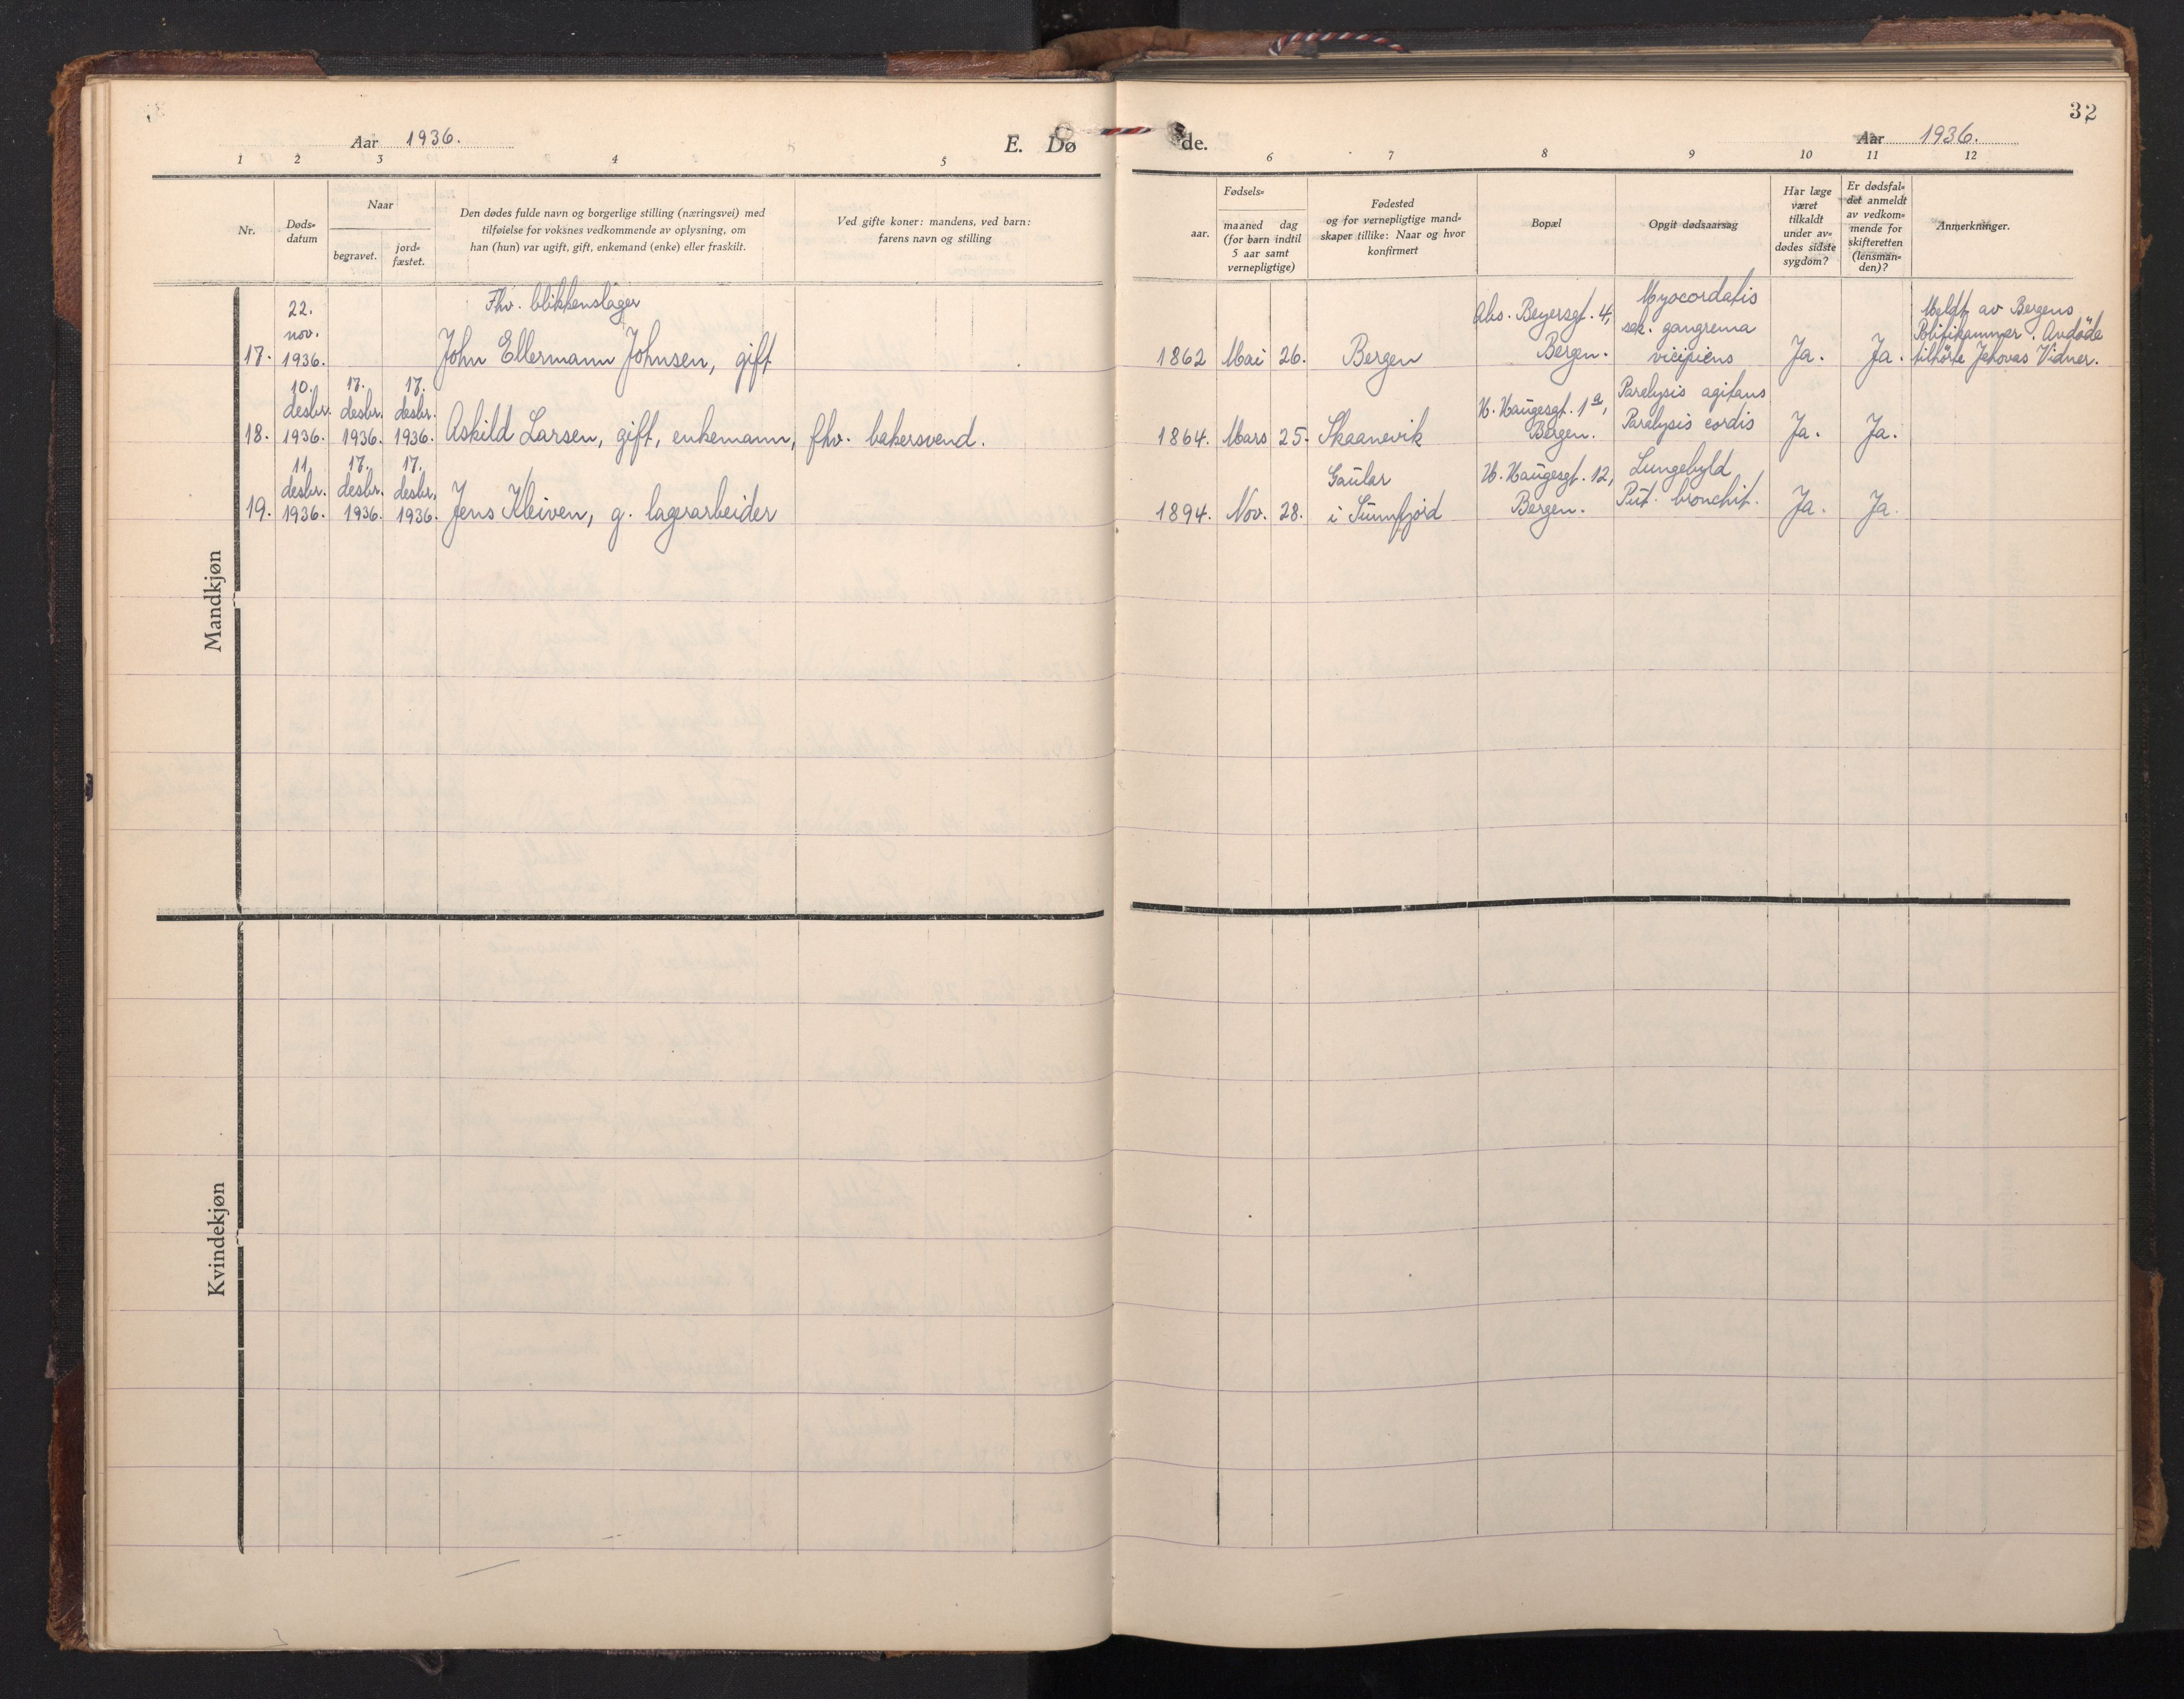 32
Aar 1936.
E. Dø
de.
Aar 1936.
1 2 3 4 5
6 7 8 9 10 11 12
Nr.
Døds-
datum
Naar
begravet.
jord-
fæstet.
Den dødes fulde navn og borgerlige stilling (næringsvei) med
tilføielse for voksnes vedkommende av oplysning, om
han (hun) var ugift, gift, enkemand (enke) eller fraskilt.
Ved gifte koner: mandens, ved barn:
farens navn og stilling
Fødsels-
aar.
maaned dag
(for barn indtil
5 aar samt
vernepligtige)
Fødested
og for vernepligtige mand-
skaper tillike: Naar og hvor
konfirmert
Bopæl
Opgit dødsaarsag
Har læge
været
tilkaldt
under av-
dødes sidste
sygdom?
Er dødsfal-
det anmeldt
av vedkom-
mende for
skifteretten
(lensman-
den)?
Anmerkninger.
Mandkjøn
17.
22.
nov.
1936.
Fhv. blikkenslager
John Ellermann Johnsen, gift
1862 Mai 26.
Bergen
Abs. Beyersgt. 4,
Bergen.
Myocordatis
sek. gangrema
vicipiens
Ja.
Ja.
Meldt av Bergens
Politikammer. Avdøde
tilhörte Jehovas Vidner.
18.
10.
desbr.
1936.
17.
desbr.
1936.
17.
desbr.
1936.
Askild Larsen, gift, enkemann, fhv. bakersvend.
1864. Mars 25.
Skaanevik
H. Haugesgt. 1 a,
Bergen.
Paralysis agitans
Paralysis cordis
Ja.
Ja.
19.
11.
desbr.
1936.
17.
desbr.
1936.
17.
desbr.
1936.
Jens Kleiven, g. lagerarbeider
1894. Nov. 28.
Gaular
i Sunnfjord
H. Haugesgt. 12,
Bergen.
Lungebyld
Put. bronchit.
Ja.
Ja.
Kvindekjøn